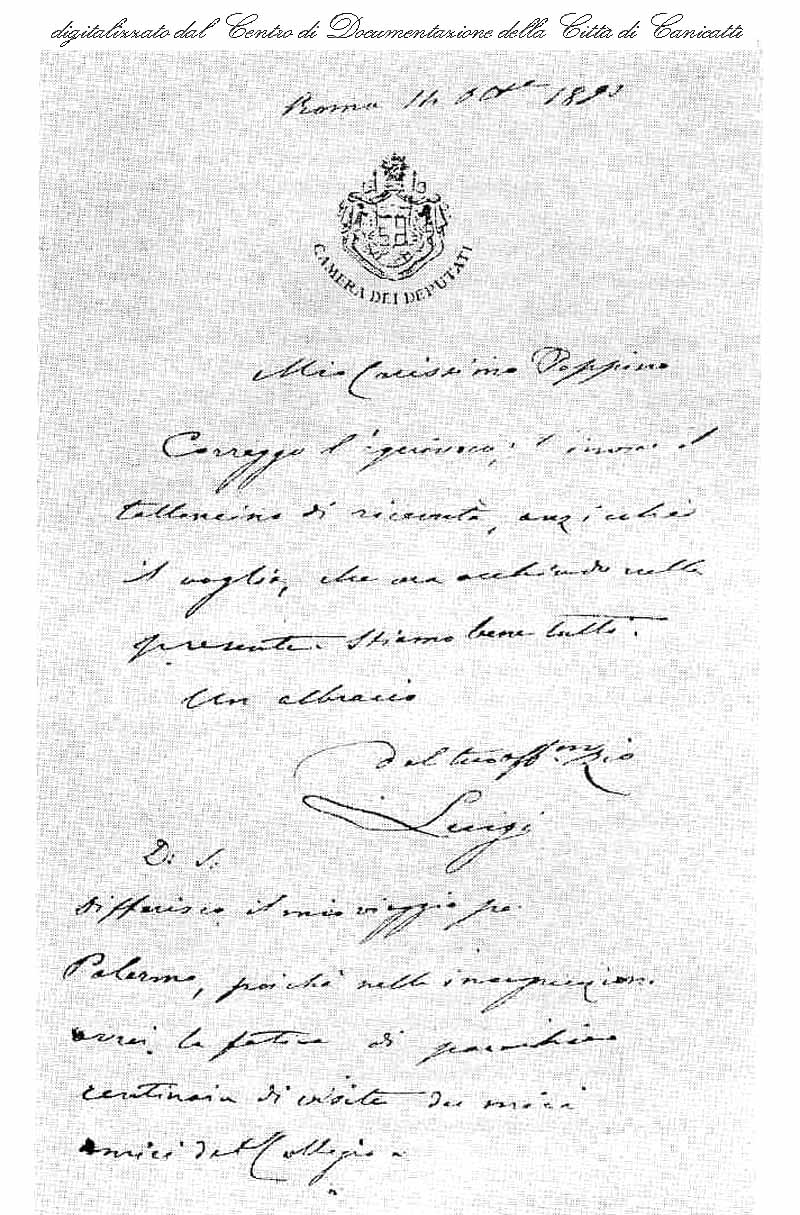 digitalizzato dal Centro di Documentazione della Città di Canicattì
Roma 14 8bre 189
CAMERA DEI DEPUTATI
Mio Carissimo Peppino
Correggo l'equivoco; t' il
talloncino di ricevuta, anzicché
il vaglia, che ora acchiudo nella
presente. Stiamo bene tutti.
Un abbraccio
dal tuo aff.mo Zio
Luigi
D. S.
Differisco il mio viaggio per
Palermo, poiché nella inaugurazione
avrei la fatica di parecchie
centinaia di visite dei miei
amici del Collegio